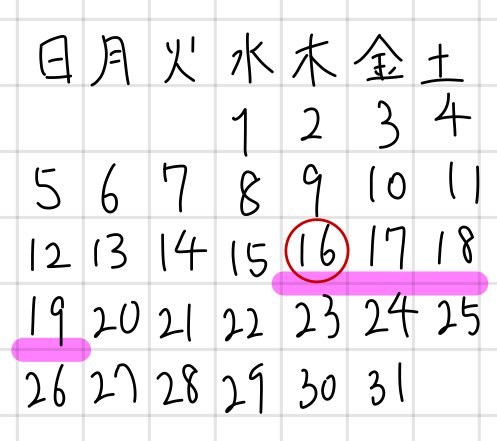 日 月 火 水 木 金 土
1 2 3 4
5 6 7 8 9 10 11
12 13 14 15 16 17 18
19 20 21 22 23 24 25
26 27 28 29 30 31